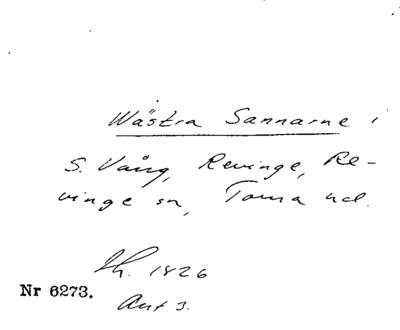 Wästra Sannarne i
S. Vång, Revinge, Re-
vinge sn, Torna hd.
Lh. 1826
Nr 6273.
Akt 3.